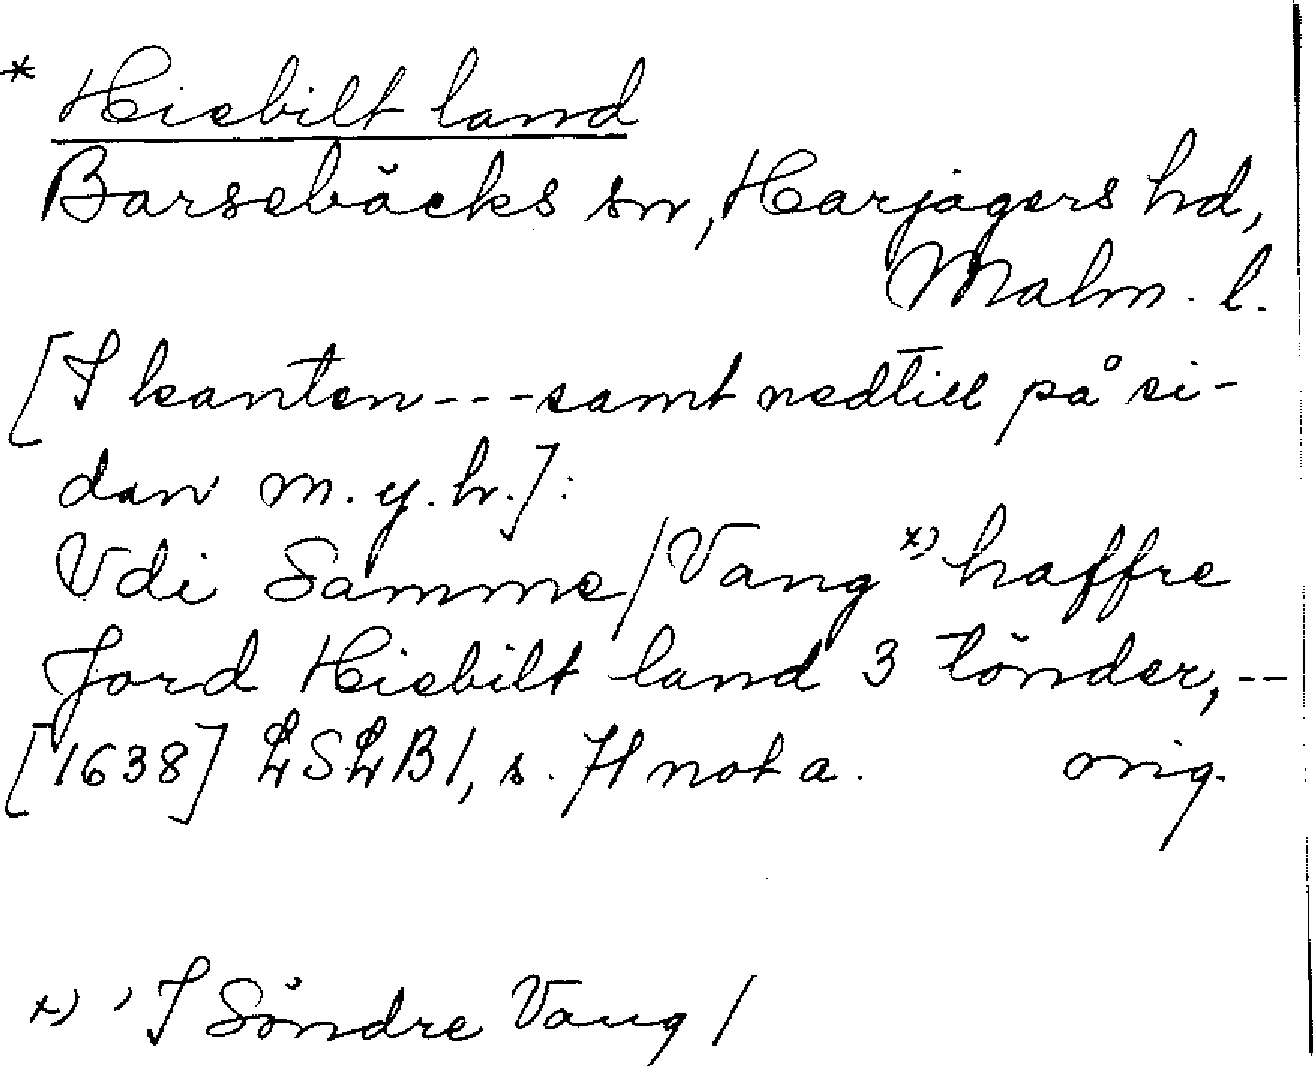 * Hiebilt land
Barsebäcks sn, Harjagers hd,
Malm. l.
[I kanten --- samt nedtill på si-
dan m. y. h.]:
Vdi Samme/Vang *) haffre
Jord Hiebilt land 3 tönder, --
[1638] LSLB 1, s. 71 not a. orig.
*) ' I Söndre Vang /